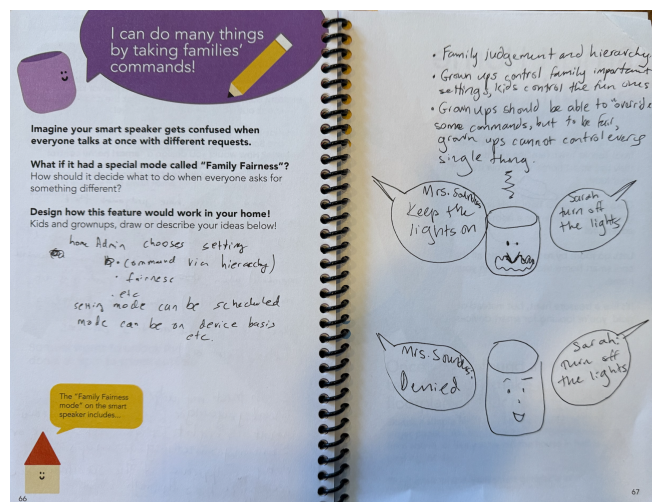 I can do many things
by taking families'
commands!
Imagine your smart speaker gets confused when
everyone talks at once with different requests.
What if it had a special mode called "Family Fairness"?
How should it decide what to do when everyone asks for
something different?
Design how this feature would work in your home!
Kids and grownups, draw or describe your ideas below!
home Admin chooses setting
• command via hierarchy)
• fairness
• etc
setting mode can be scheduled
mode can be on device basis
etc.
The "Family Fairness
mode" on the smart
speaker includes...
66
• Family judgement and hierarchy
• Grown ups control family important
settings, kids control the fun ones
• Grown ups should be able to "override
some commands, but to be fair,
grown ups cannot control every
single thing.
Mrs.
Keep the
lights on
Sarah
turn off
the lights
Mrs.
Denied
Sarah:
Turn off
the lights
67